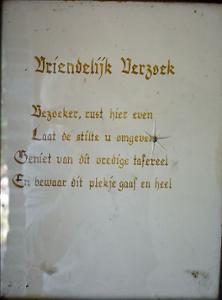 Vriendelijk Verzoek
Bezoeker, rust hier even
Laat de stilte u omgeven
Geniet van dit vredige tafereel
En bewaar dit plekje gaaf en heel